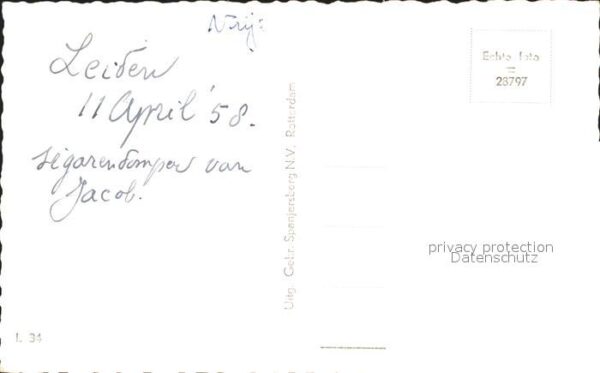 Vrij:
Leiden
11 April '58.
sigarendomper van
Jacob.
Uitg. Gebr. Spanjersberg N.V. Rotterdam
Echte foto
=
23797
privacy protection
Datenschutz
L. 34